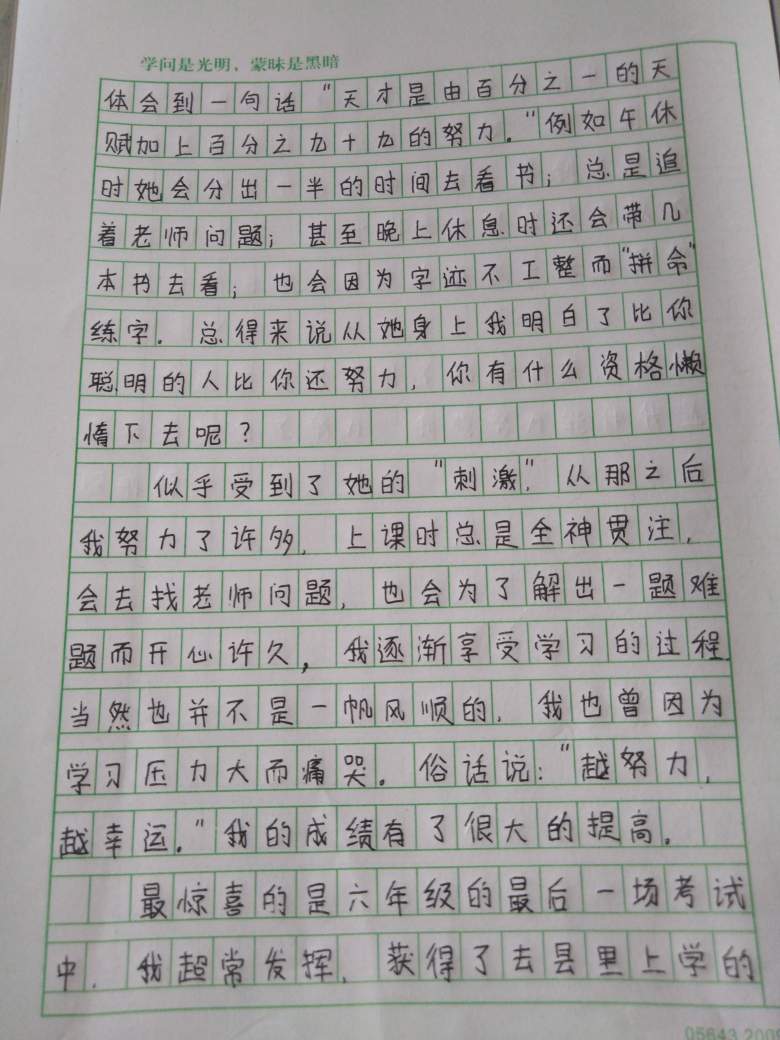 学问是光明，蒙昧是黑暗
体会到一句话“天才是由百分之一的天
赋加上百分之九十九的努力。”例如午休
时她会分出一半的时间去看书；总是追
着老师问题；甚至晚上休息时还会带几
本书去看；也会因为字迹不工整而“拼命”
练字．总得来说从她身上我明白了比你
聪明的人比你还努力，你有什么资格懒
惰下去呢？
似乎受到了她的“刺激”，从那之后
我努力了许多，上课时总是全神贯注，
会去找老师问题，也会为了解出一题难
题而开心许久，我逐渐享受学习的过程
当然也并不是一帆风顺的，我也曾因为
学习压力大而痛哭。俗话说：“越努力，
越幸运。”我的成绩有了很大的提高。
最惊喜的是六年级的最后一场考试
中，我超常发挥，获得了去县里上学的